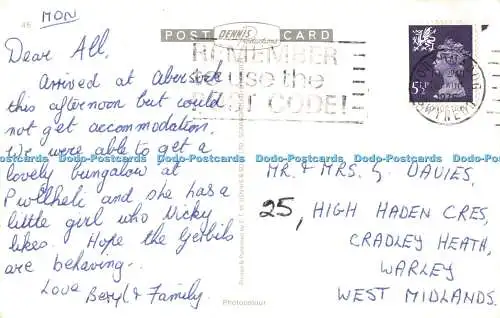 MON
46
POST CARD
DENNIS
Productions
REMEMBER
use the
POST CODE!
5½P
Dear All,
Arrived at Abersock
this afternoon but could
not get accommodation.
We were able to get a
lovely bungalow at
Pwllheli and she has a
little girl who Nicky
likes. Hope the Gerbils
are behaving.
Love Beryl & Family.
MR. & MRS. G. DAVIES,
25, HIGH HADEN CRES,
CRADLEY HEATH,
WARLEY
WEST MIDLANDS.
Photocolour
Dodo-Postcards Dodo-Postcards Dodo-Postcards Dodo-Postcards Dodo-Postcards Dodo-Postcards